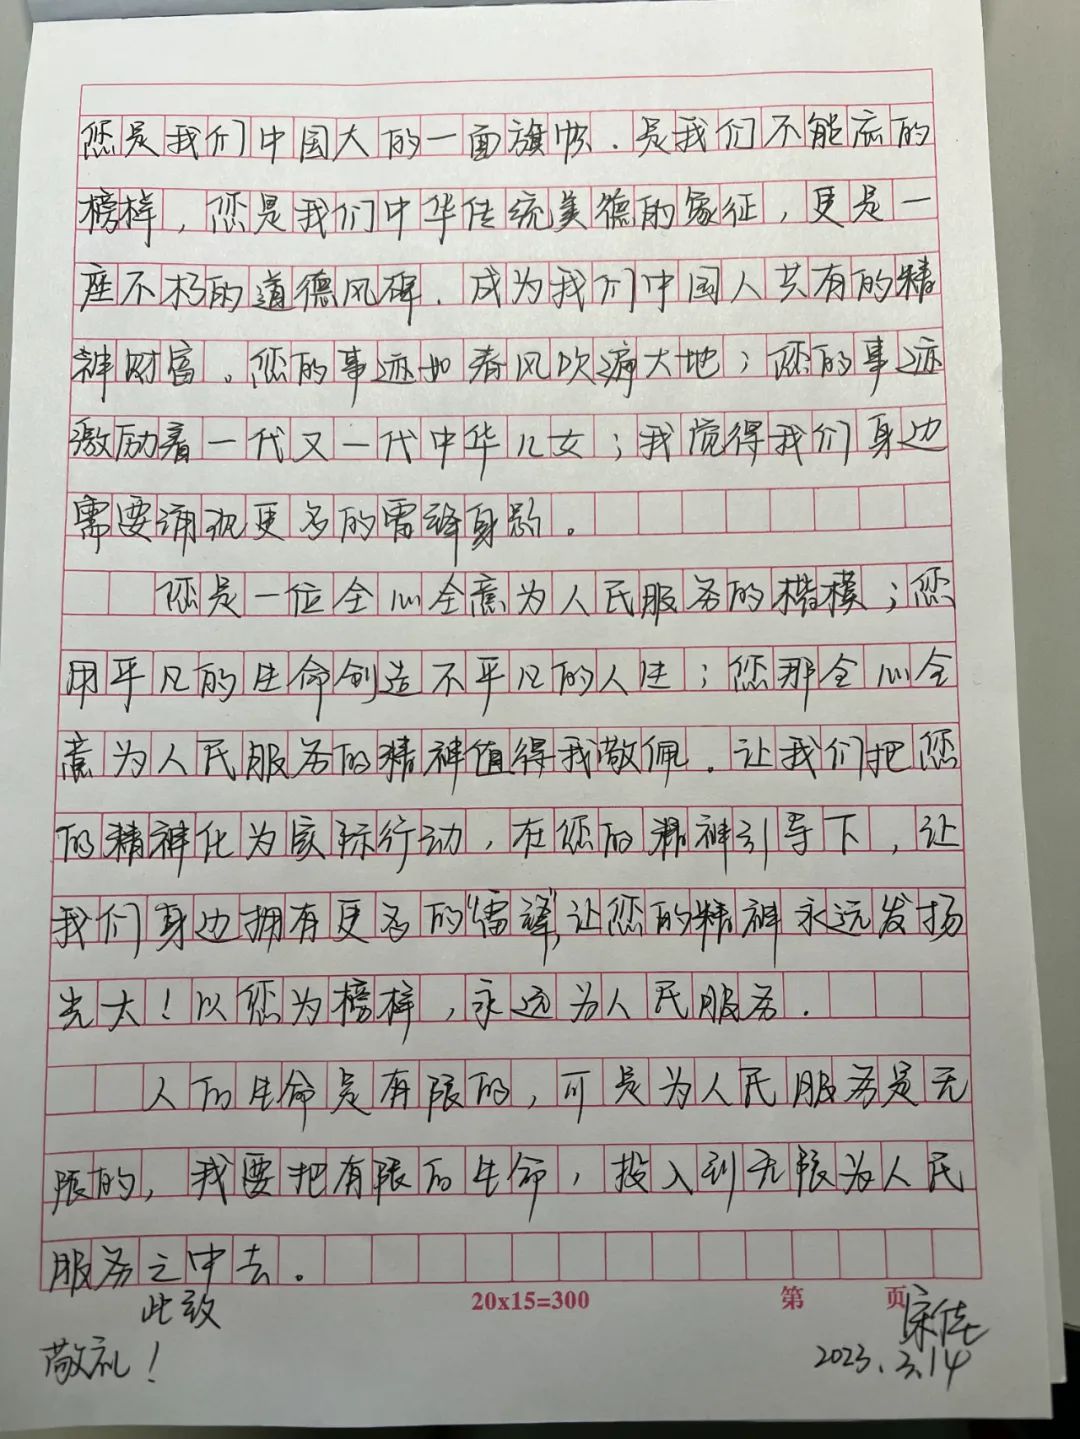 您是我们中国大的一面旗帜.是我们不能忘的
榜样,您是我们中华传统美德的象征,更是一
座不朽的道德风碑.成为我们中国人共有的精
神财富。您的事迹如春风吹遍大地;您的事迹
激励着一代又一代中华儿女;我觉得我们身边
需要涌现更多的雷锋身影。
您是一位全心全意为人民服务的楷模;您
用平凡的生命创造不平凡的人生;您那全心全
意为人民服务的精神值得我敬佩.让我们把您
的精神化为实际行动,在您的精神引导下,让
我们身边拥有更多的“雷锋”,让您的精神永远发扬
光大!以您为榜样,永远为人民服务.
人的生命是有限的,可是为人民服务是无
限的,我要把有限的生命,投入到无限为人民
服务之中去。
20x15=300 第 页
此致
敬礼!
宋佳
2023.3.14